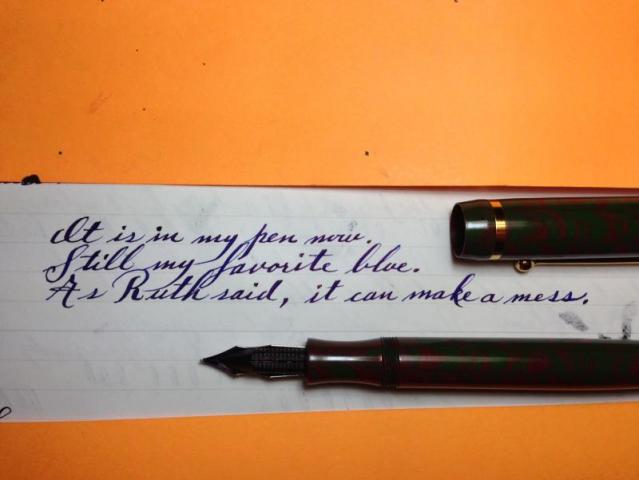 It is in my pen now.
Still my favorite blue.
As Ruth said, it can make a mess.